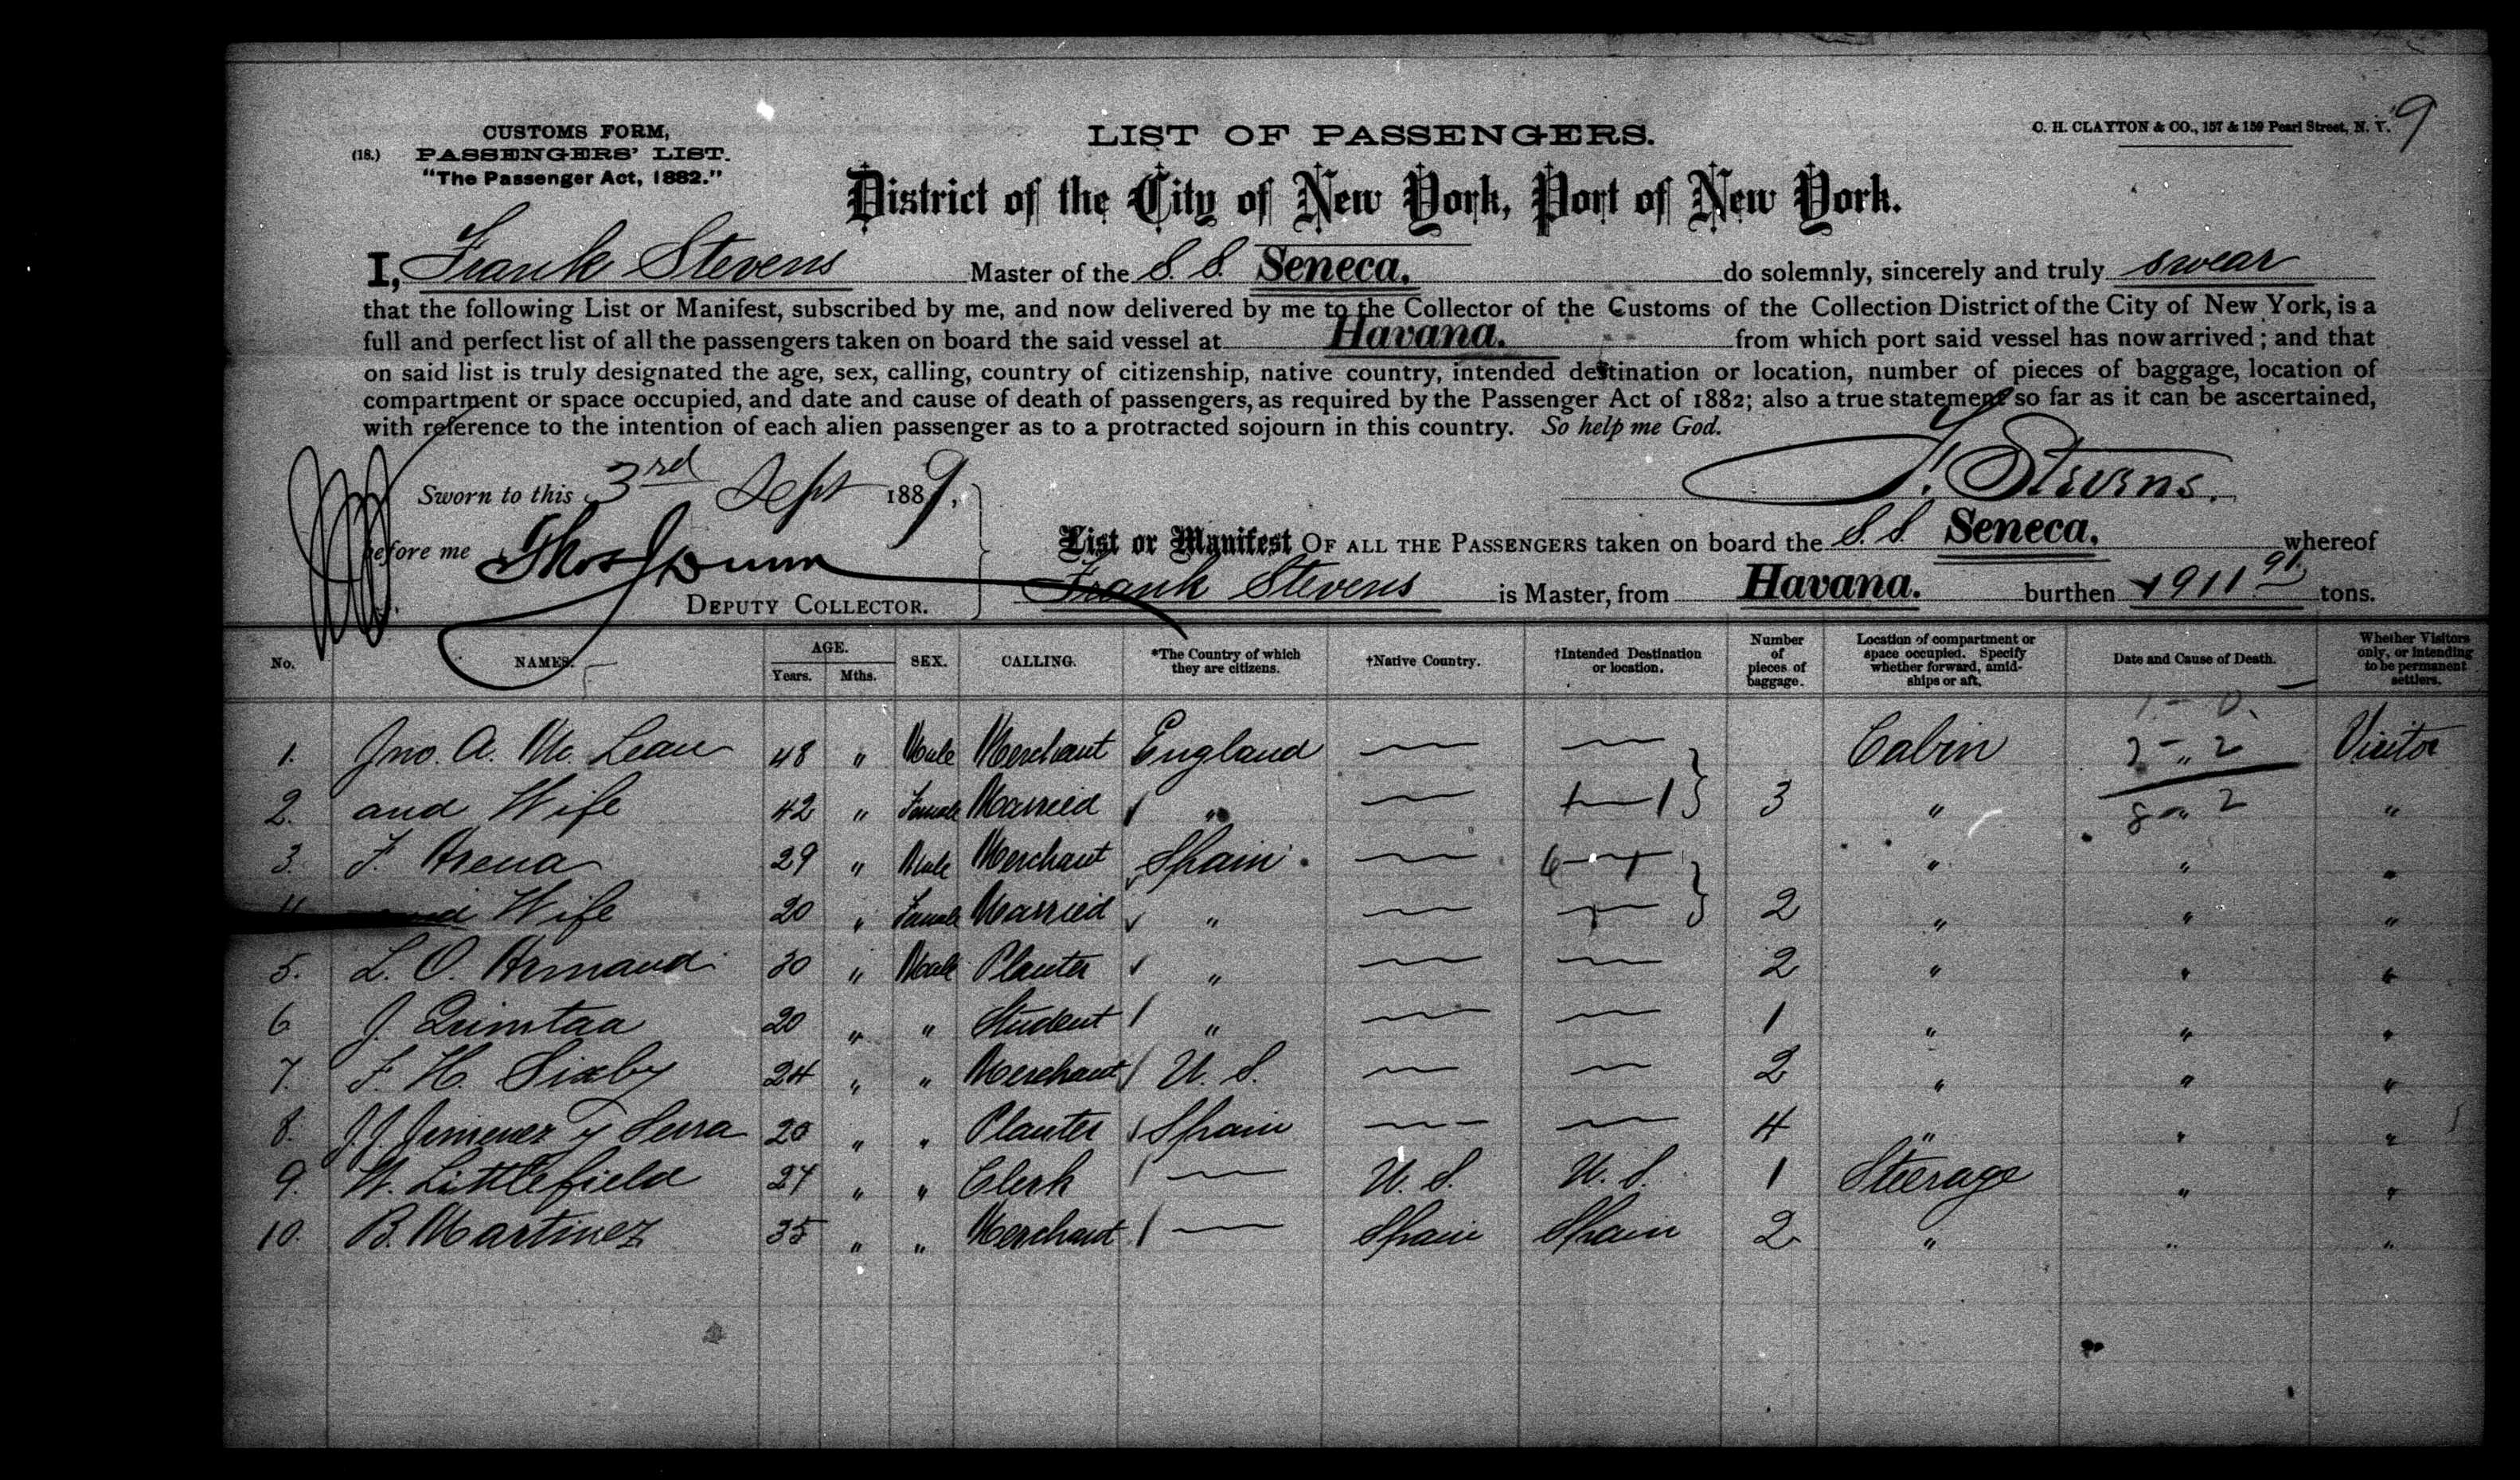 9
CUSTOMS FORM,
(18.) PASSENGERS' LIST.
"The Passenger Act, 1882."
LIST OF PASSENGERS.
C. H. CLAYTON & CO., 157 & 159 Pearl Street, N. Y.
District of the City of New York, Port of New York.
I, Frank Stevens Master of the S. S. Seneca. do solemnly, sincerely and truly swear
that the following List or Manifest, subscribed by me, and now delivered by me to the Collector of the Customs of the Collection District of the City of New York, is a
full and perfect list of all the passengers taken on board the said vessel at Havana. from which port said vessel has now arrived; and that
on said list is truly designated the age, sex, calling, country of citizenship, native country, intended destination or location, number of pieces of baggage, location of
compartment or space occupied, and date and cause of death of passengers, as required by the Passenger Act of 1882; also a true statement so far as it can be ascertained,
with reference to the intention of each alien passenger as to a protracted sojourn in this country. So help me God.
F. Stevens.
Sworn to this 3rd Sept 1889,
before me Thos Dunn
DEPUTY COLLECTOR.
List or Manifest OF ALL THE PASSENGERS taken on board the S. S. Seneca. whereof
Frank Stevens is Master, from Havana. burthen 1911 91 tons.
No. NAMES. AGE. Years. Mths. SEX. CALLING. *The Country of which they are citizens. †Native Country. †Intended Destination or location. Number of pieces of baggage. Location of compartment or space occupied. Specify whether forward, amidships or aft. Date and Cause of Death. Whether Visitors only, or intending to be permanent settlers.
1. Jno. A. Mc. Lean 48 " Male Merchant England — — Cabin Visitor
2. and Wife 42 " Female Married " — — 3 " "
3. F. Arena 29 " Male Merchant Spain — — " " "
4. and Wife 20 " Female Married " — — 2 " " "
5. L. O. Armand 30 " Male Planter " — — 2 " " "
6 J. Quintaa 20 " " Student " — — 1 " " "
7. F. H. Sixby 24 " " Merchant U. S. — — 2 " " "
8. J. J. Jimenez y Serra 20 " " Planter Spain — — 4 " " "
9. W. Littlefield 27 " " Clerk — U. S. U. S. 1 Steerage " "
10. B. Martinez 35 " " Merchant — Spain Spain 2 " " "